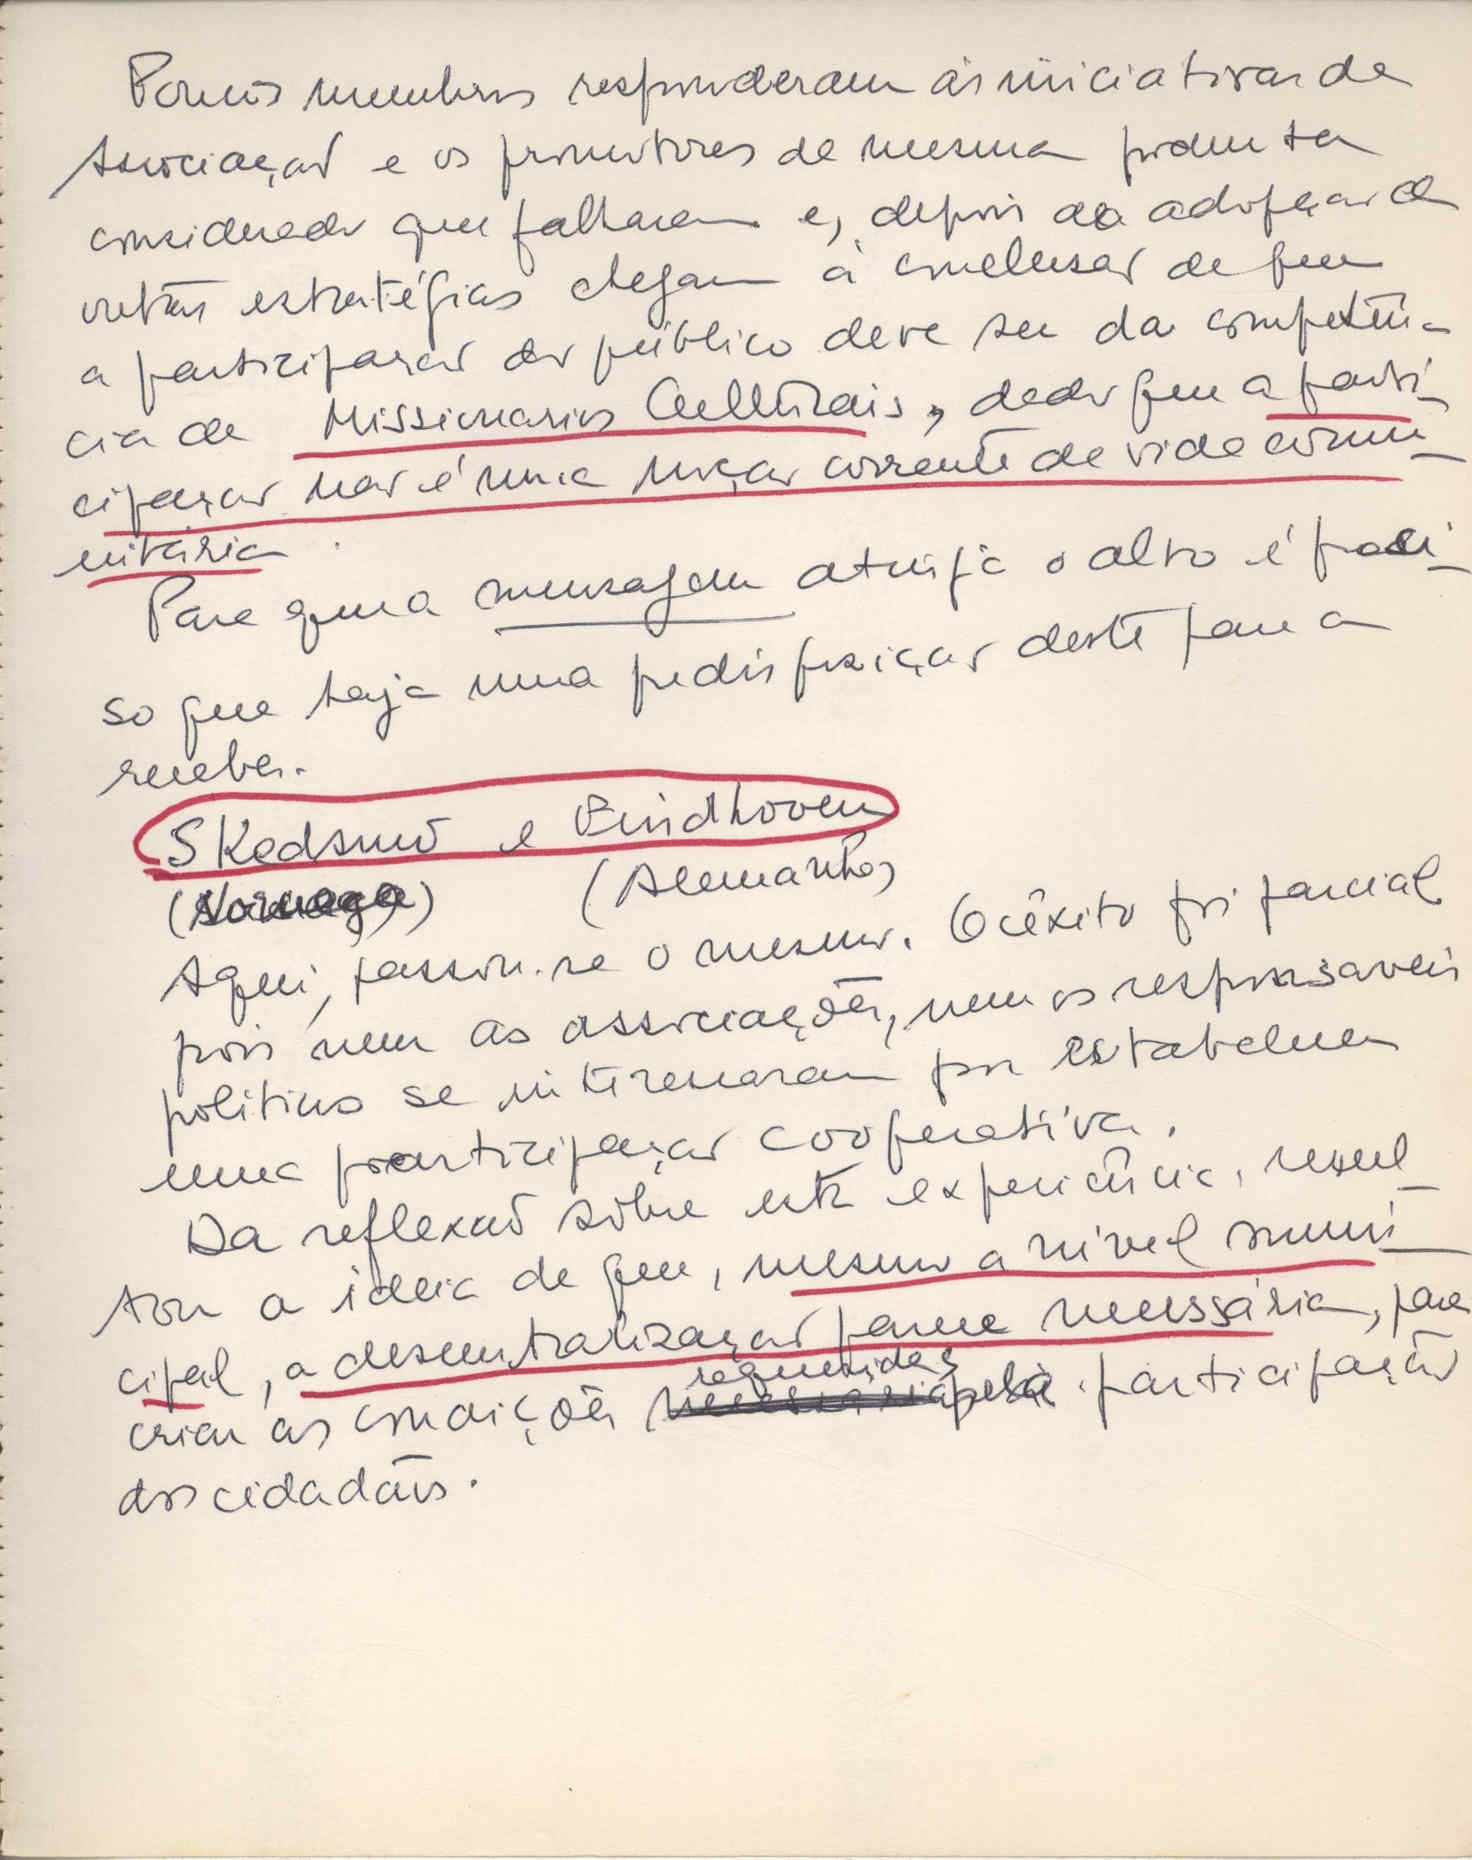 Poucos membros responderam às iniciativas da
Associação e os promotores da mesma podem ter
considerado que falharam e, depois da adopção de
outras estratégias chegam à conclusão de que
a participação do público deve ser da competên-
cia de Missionários Culturais, dado que a parti-
cipação não é uma noção corrente de vida comu-
nitária.
Para que a mensagem atinja o alvo é preci-
so que haja uma predisposição deste para a
receber.
Skedsmo e Eindhoven
(Noruega) (Alemanha)
Aqui, passou-se o mesmo. O êxito foi parcial
pois nem as associações, nem os responsaveis
politicos se interessaram por estabelecer
uma participação cooperativa.
Da reflexão sôbre esta experiência, resul-
tou a ideia de que, mesmo a nível muni-
cipal, a descentralização parece necessária, para
criar as condições requeridas pela participação
dos cidadãos.